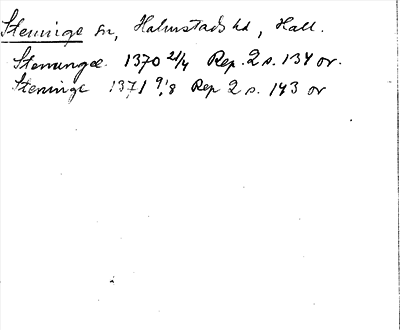 Steninge sn, Halmstads hd, Hall.
Stenungæ. 1370 21/4 Rep. 2 s. 134 or.
Steninge 1371 9/8 Rep 2 s. 143 or